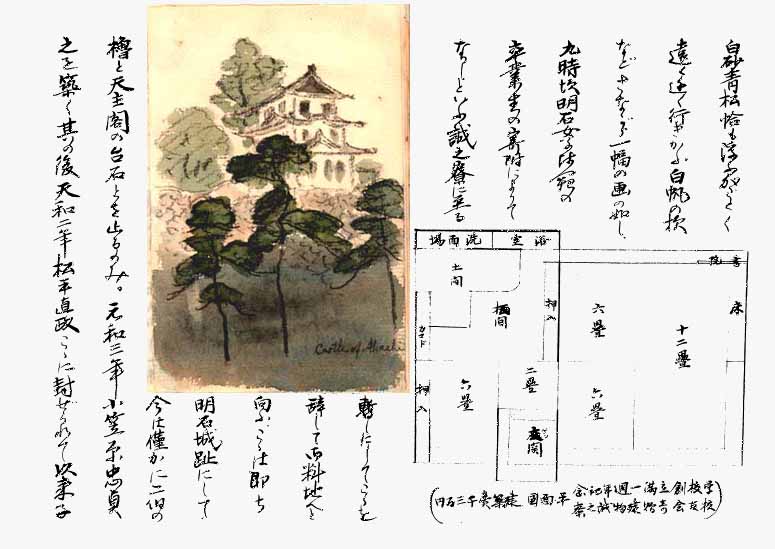 白砂青松恰も
遠く近く行きかふ白帆の様
など、さながら一幅の画の如し、
九時頃明石女子師範の
卒業生の寄附によりて
なりしといふ誠之寮に至る
浴室
洗面場
書院
床
土間
板間
押入
カマド
六畳
十二畳
二畳
六畳
六畳
押入
玄関
学校創立満一週年記念
校友会寄贈建物誠之寮
平面図
建築費千三百円
Castle of Akashi
暫しにしてこゝを
辞して御料地へと
向ふ、こは即ち
明石城趾にして
今は僅かに二個の
櫓と天主閣の台石とを止むるのみ。元和三年小笠原忠貞
之を築く其の後天和二年松平直政こゝに封ぜられて以来子